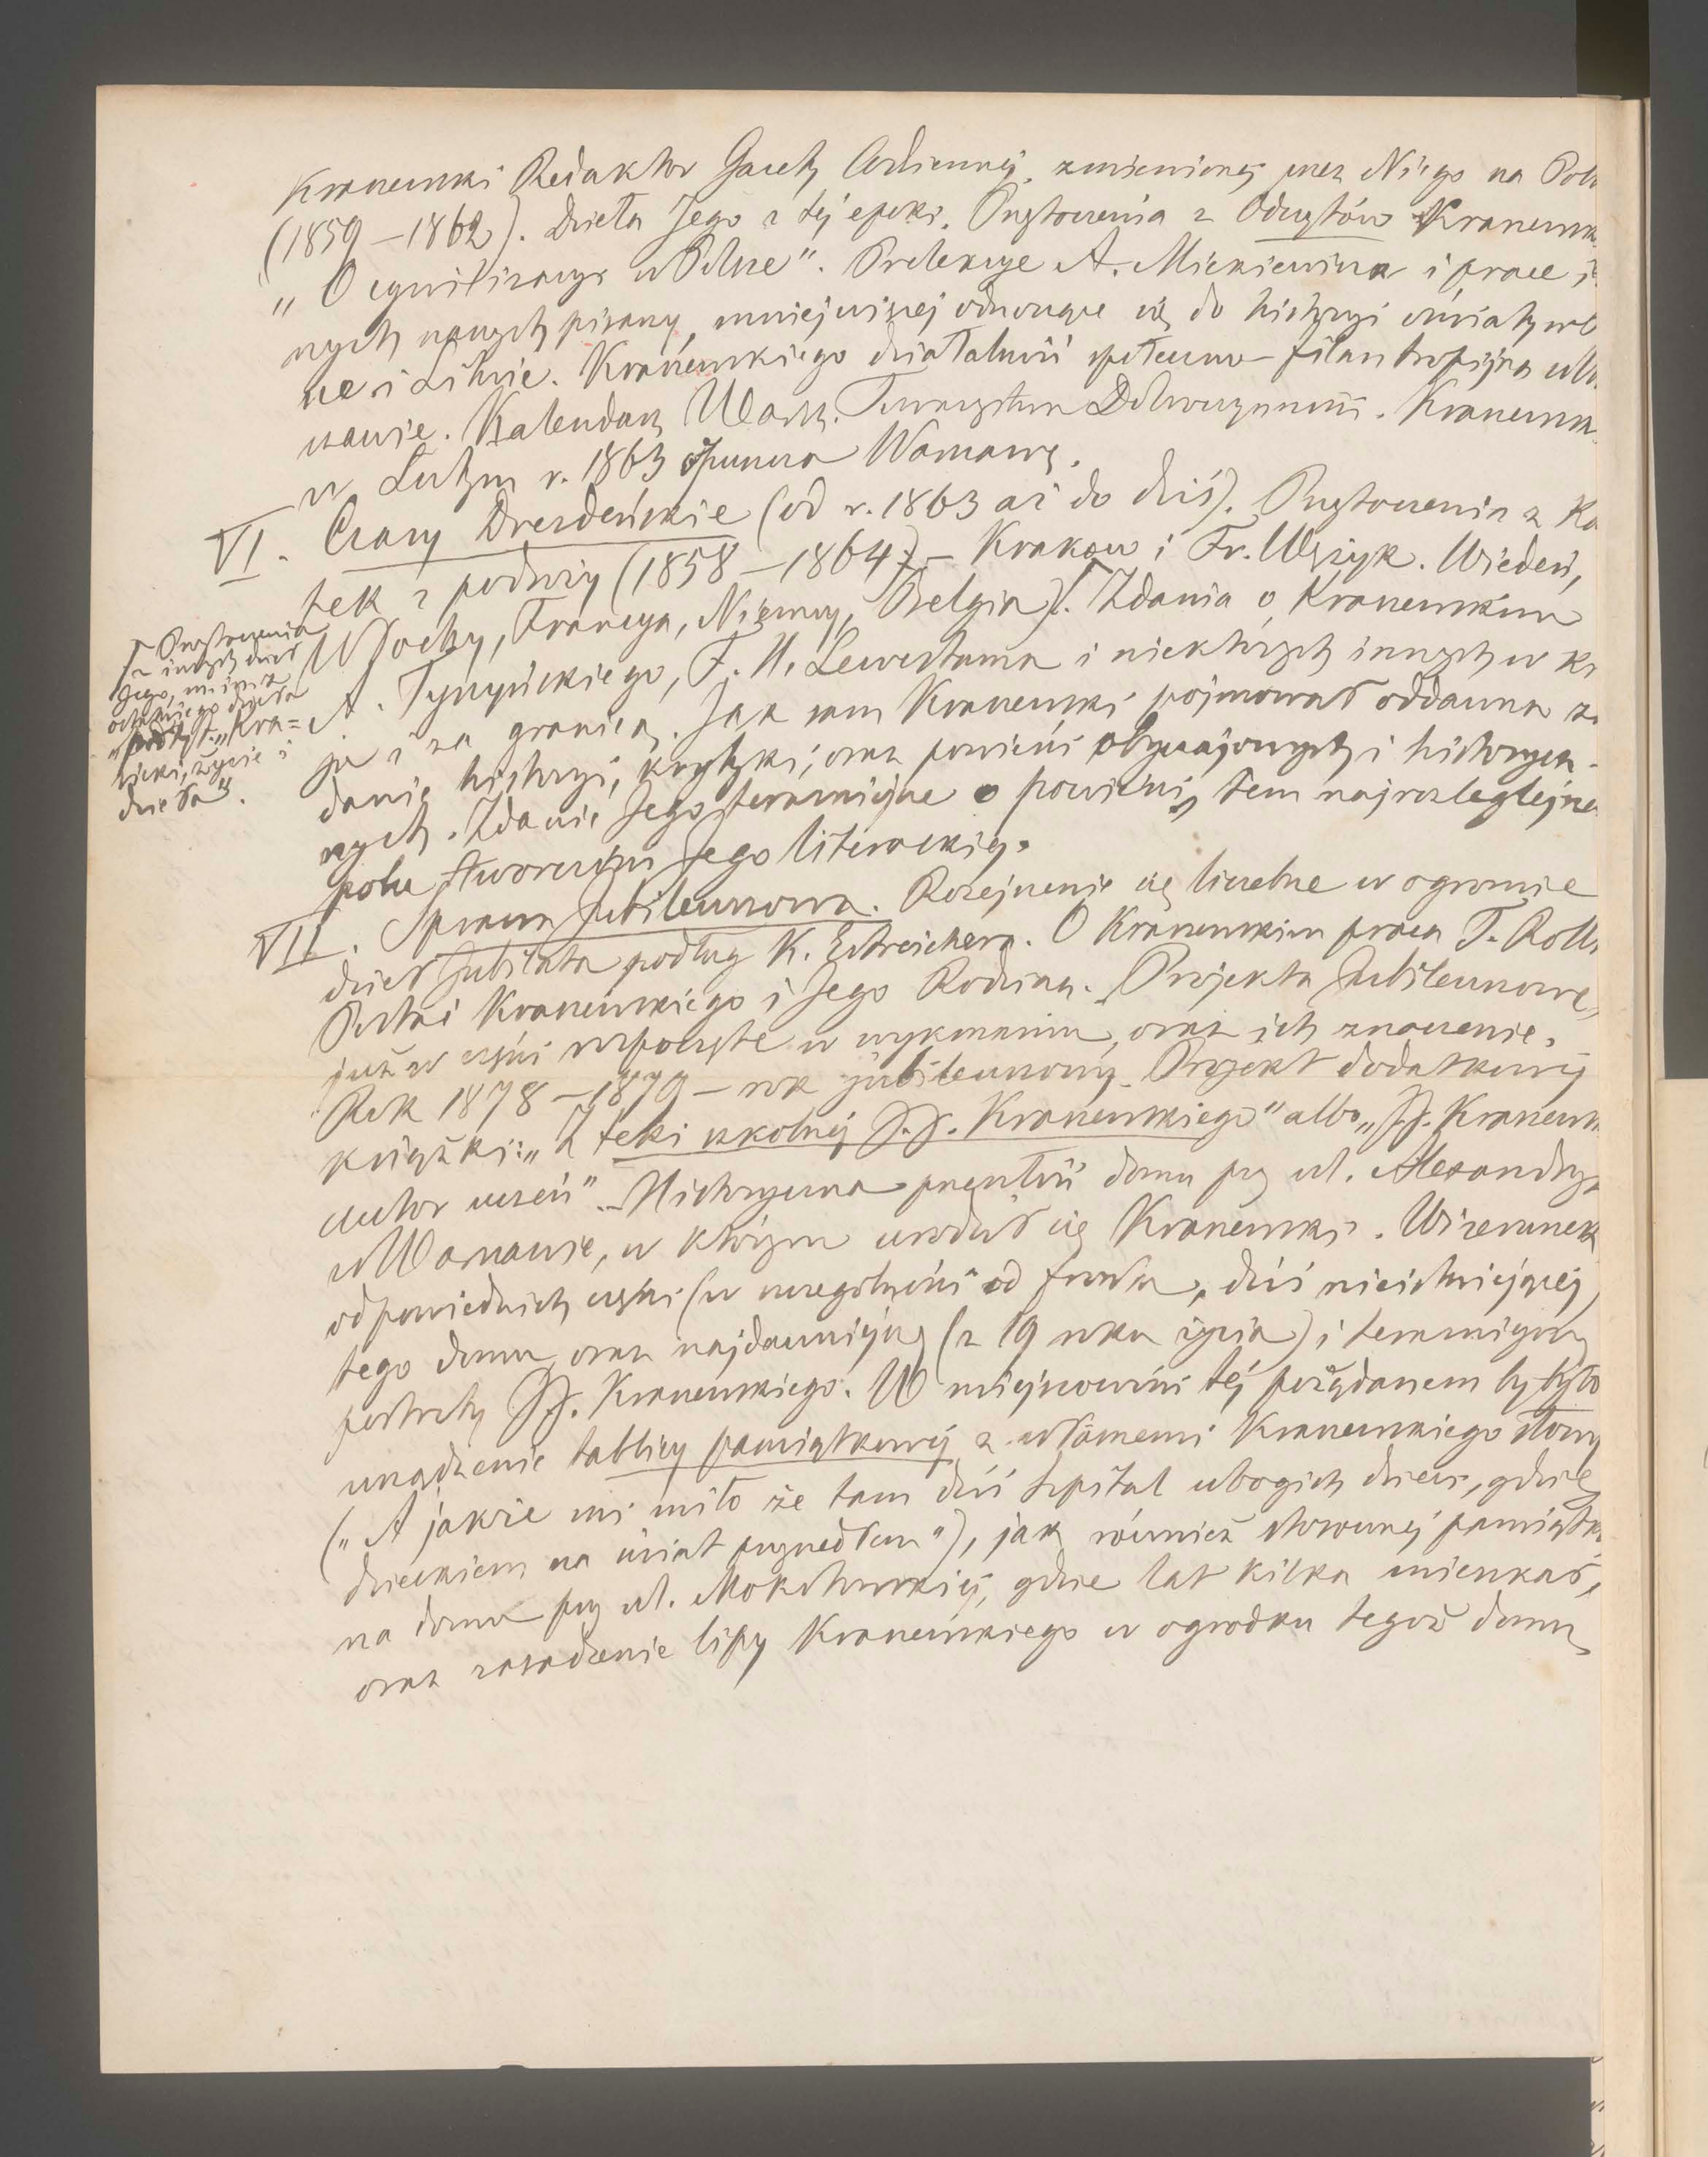 Kraszewski Redaktor Gazety Codziennéj, zmienionej przez Niego na Pols
(1859–1862). Dzieła Jego z téj epoki. Przytoczenia z Odczytów Kraszewsk
„O cywilizacyi w Polsce". Prelekcye A. Mickiewicza i prace in
nych naszych pisarzy, mniejwięcej odnoszące się do historyi oświaty w Pol
sce i Litwie. Kraszewskiego działalność społeczno-filantropijna w War
szawie. Kalendarz Warsz. Towarzystwa Dobroczynności. Kraszewsk
w Lutym r. 1863 opuszcza Warszawę.
VI. Czasy Drezdeńskie (od r. 1863 aż do dziś). Przytoczenia z Ka
tek z podróży (1858–1864) – Krakow i Fr. Wężyk. Wiedeń,
Włochy, Francya, Niemcy, Belgia). Zdania o Kraszewskim
A. Tyszyńskiego, F. H. Lewestama i niektórych innych w kra
ju i za granicą. Jak sam Kraszewski pojmował oddawna za
danie historyi, krytyki, oraz powieści obyczajowych i historycz-
nych. Zdanie Jego teraźniejsze o powieści, tem najrozleglejszem
polu twórczości Jego literackiéj.
Przytoczenia
z innych dzieł
Jego, mianow.
ostatniego dzieła
"pod tyt. „Kra=
sicki, życie i
dzieła".
VII. Sprawa Jubileuszowa. Rozejrzenie się liczebne w ogromie
dzieł Jubilata podług K. Estreichera. O Kraszewskim praca T. Rolle
Postać Kraszewskiego i Jego Rodzina. Projekta Jubileuszowe,
już w części rozpoczęte w wykonaniu, oraz ich znaczenie.
Rok 1878–1879 – rok jubileuszowy. Projekt dodatkowy
książki: „Z teki szkolnéj J.J. Kraszewskiego" albo „J.J. Kraszewsk
autor uczeń". Historyczna przeszłość domu przy ul. Alexandrya
w Warszawie, w którym urodził się Kraszewski. Wizerunek
odpowiednich części (w szczególności od frontu, dziś nieistniejącéj)
tego domu, oraz najdawniejszy (z 19 roku życia) i teraźniejszy
portrety J.J. Kraszewskiego. W miejscowości téj pożądanem by było
urządzenie tablicy pamiątkowéj z własnemi Kraszewskiego słowy
(„A jakże mi miło że tam dziś Szpital ubogich dzieci, gdzie
dzieckiem na świat przyszedłem"), jak również stosownéj pamiątki
na domu przy ul. Mokotowskiéj, gdzie lat kilka mieszkał,
oraz zasadzenie lipy Kraszewskiego w ogrodku tegoż domu